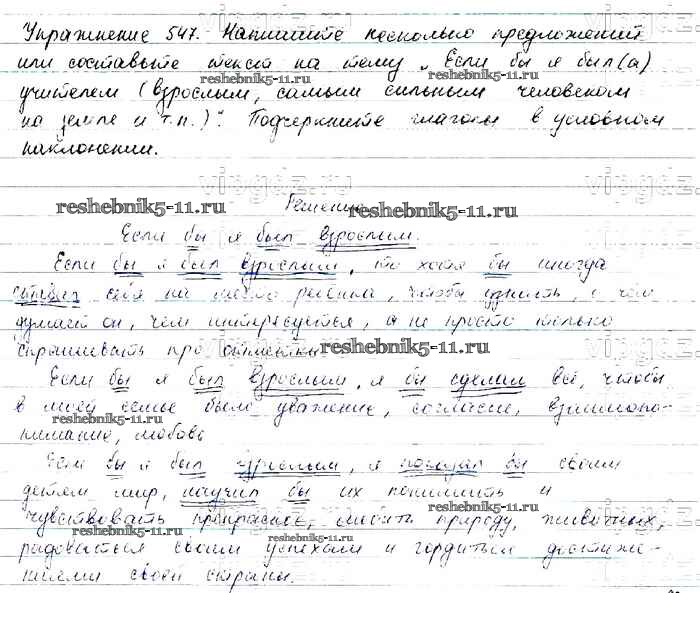 vipgdz.ru
Упражнение 547. Напишите несколько предложений
или составьте текст на тему „Если бы я был(а)
reshebnik5-11.ru
учителем (взрослым, самым сильным человеком
на земле и т.п.)". Подчеркните глаголы в условном
наклонении.
vipgdz.ru
reshebnik5-11.ru
Решение
Если бы я был взрослым.
Если бы я был взрослым, то хотя бы иногда
ставил себя на место ребёнка, чтобы узнать, о чём
думает он, чем интересуется, а не просто только
спрашивать про отметки
reshebnik5-11.ru
Если бы я был взрослым, я бы сделал всё, чтобы
в моей семье было уважение, согласие, взаимопо-
нимание, любовь
Если бы я был взрослым, я показал бы своим
детям мир, научил бы их понимать и
reshebnik5-11.ru
чувствовать прекрасное, любить природу, животных,
reshebnik5-11.ru
радоваться своим успехам и гордиться достиже-
ниями своей страны.